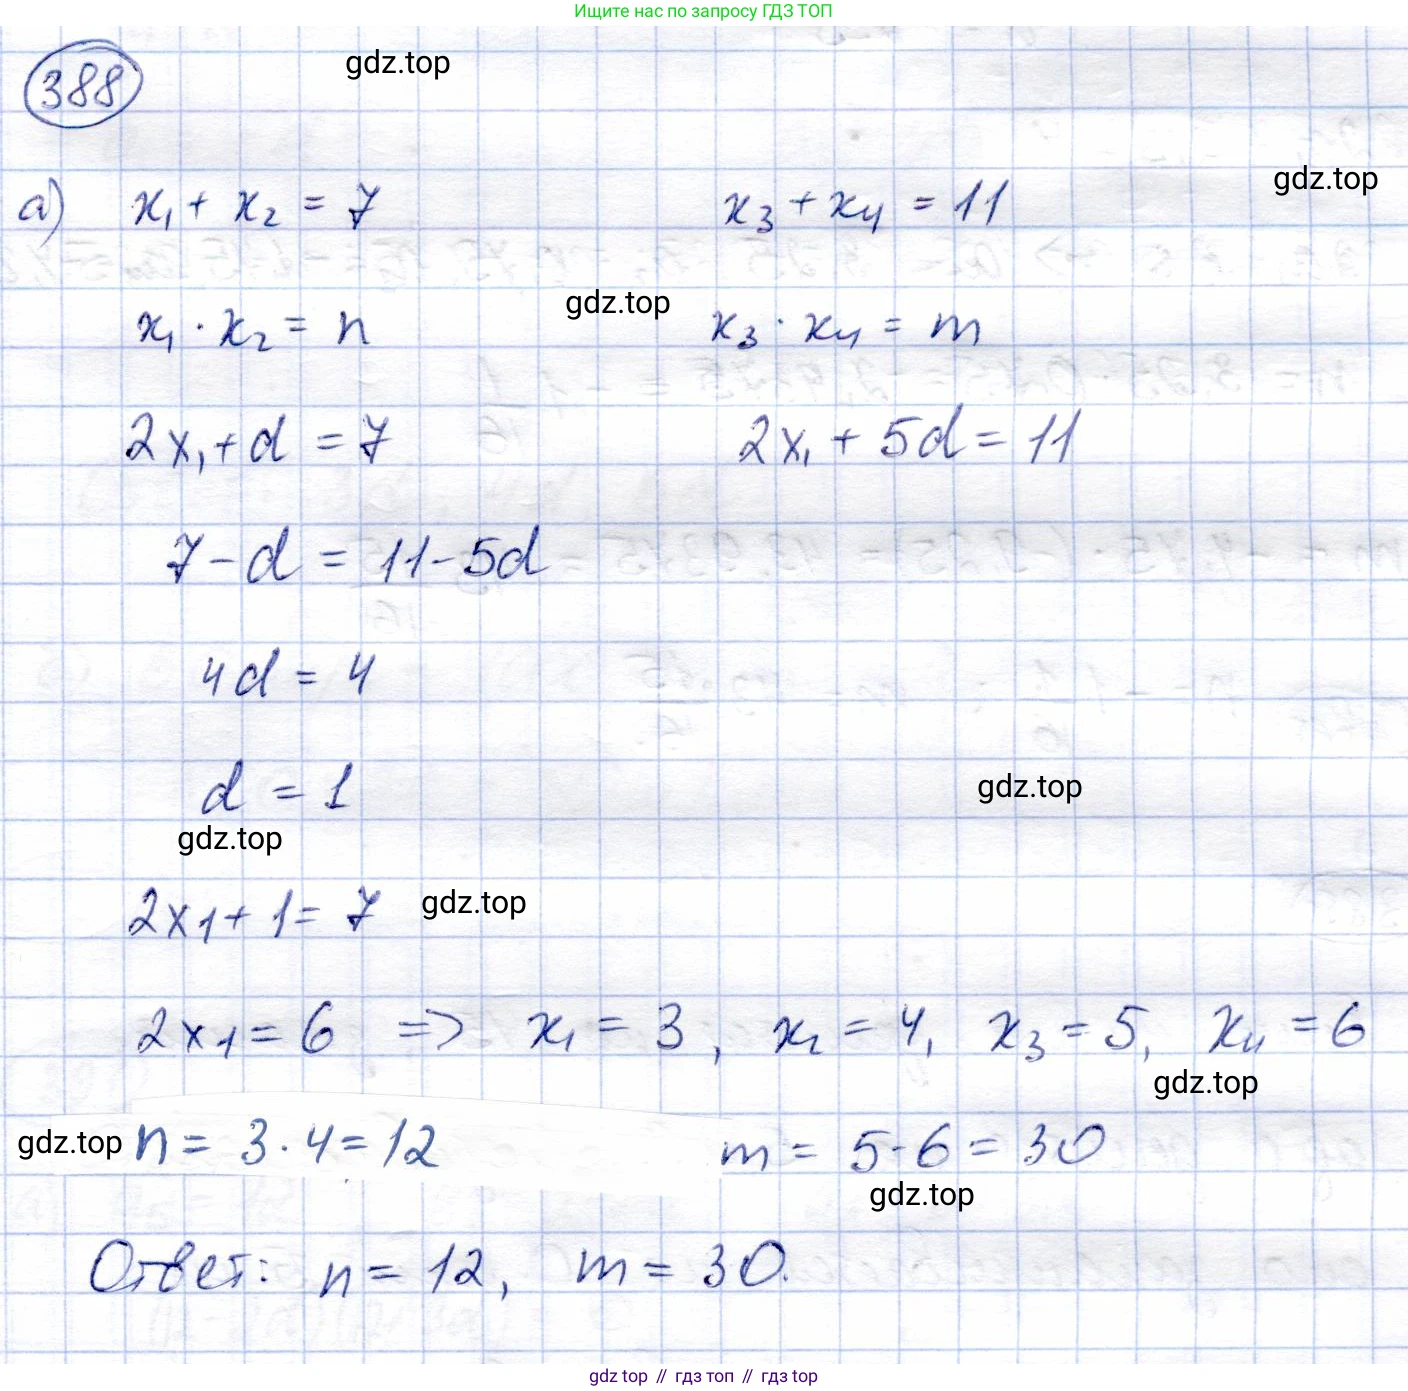 Ищите нас по запросу ГДЗ ТОП
388
gdz.top
а) x₁ + x₂ = 7 x₃ + x₄ = 11
gdz.top
gdz.top
x₁ · x₂ = n x₃ · x₄ = m
2x₁ + d = 7 2x₁ + 5d = 11
7 - d = 11 - 5d
4d = 4
d = 1
gdz.top
gdz.top
2x₁ + 1 = 7
gdz.top
2x₁ = 6 => x₁ = 3, x₂ = 4, x₃ = 5, x₄ = 6
gdz.top
gdz.top
n = 3 · 4 = 12 m = 5 · 6 = 30
gdz.top
Ответ: n = 12, m = 30.
gdz top // гдз топ // гдз top